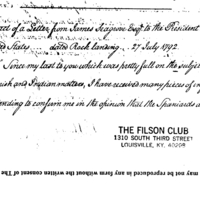 ct of a Letter from James Seagrove Esqr. to the President
ed States, dated Rock landing, 27 July 1792.
"Since my last to you which was pretty full on the subject
ish and Indian matters, I have received many pieces of in
ending to confirm me in the opinion that the Spaniards a
THE FILSON CLUB
1310 SOUTH THIRD STREET
LOUISVILLE, KY. 40208
ay not be reproduced in any form without the written consent of The